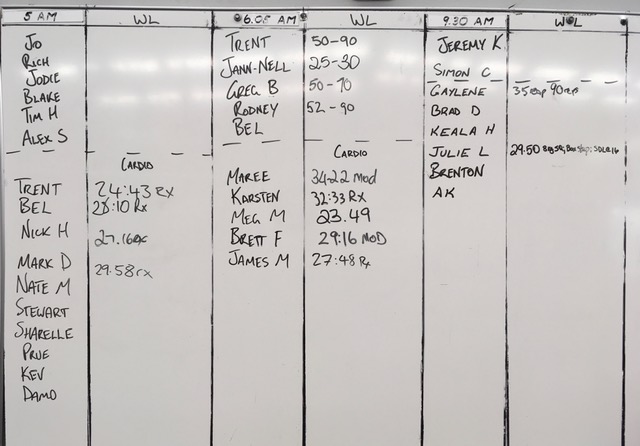 5 AM WL
Jo
Rich
Jodie
Blake
Tim H
Alex S
Cardio
Trent 24:43 Rx
Bel 28:10 Rx
Nick H 27.16 Rx
Mark D 29:58 rx
Nate M
Stewart
Sharelle
Prue
Kev
Damo
6.05 AM WL
Trent 50-90
Jann-Nell 25-30
Greg B 50-70
Rodney 52-90
Bel
Cardio
Maree 34:22 Mod
Karsten 32:33 Rx
Meg M 23.49
Brett F 29:16 Mod
James M 27:48 Rx
9.30 AM WOL
Jeremy K
Simon C
Gaylene 35 90
Brad D
Keala H
Julie L 29:50
Brenton
AK